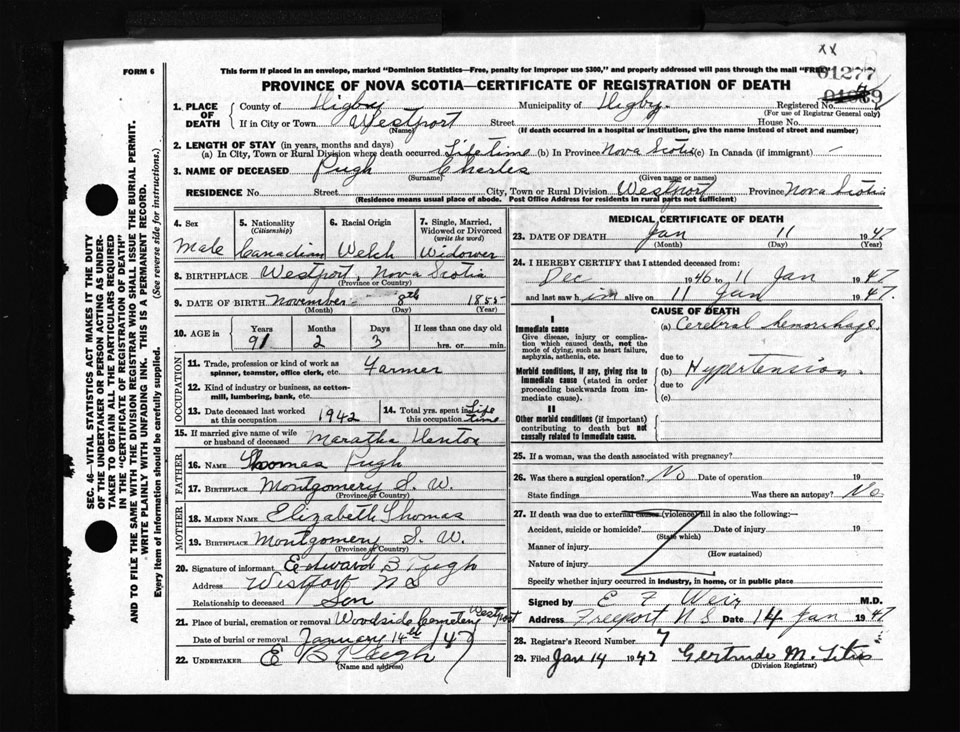 XX
FORM 6
This form if placed in an envelope, marked "Dominion Statistics—Free, penalty for improper use $300," and properly addressed will pass through the mail "FREE"
01277
PROVINCE OF NOVA SCOTIA—CERTIFICATE OF REGISTRATION OF DEATH
1. PLACE OF DEATH County of Digby Municipality of Digby Registered No. 7
(For use of Registrar General only)
If in City or Town Westport Street House No.
(Name) (If death occurred in a hospital or institution, give the name instead of street and number)
2. LENGTH OF STAY (in years, months and days)
(a) In City, Town or Rural Division where death occurred Life time (b) In Province Nova Scotia (c) In Canada (if immigrant) —
3. NAME OF DECEASED Pugh Charles
(Surname) (Given name or names)
RESIDENCE No. Street City, Town or Rural Division Westport Province Nova Scotia
(Residence means usual place of abode. Post Office Address for residents in rural parts not sufficient)
4. Sex Male
5. Nationality (Citizenship) Canadian
6. Racial Origin Welch
7. Single, Married, Widowed or Divorced (write the word) Widower
8. BIRTHPLACE Westport, Nova Scotia
(Province or Country)
9. DATE OF BIRTH November 8th 1855
(Month) (Day) (Year)
10. AGE in Years Months Days If less than one day old
91 2 3 hrs. or min.
OCCUPATION
11. Trade, profession or kind of work as spinner, teamster, office clerk, etc. Farmer
12. Kind of industry or business, as cotton-mill, lumbering, bank, etc.
13. Date deceased last worked at this occupation 1942
14. Total yrs. spent in this occupation Life time
15. If married give name of wife or husband of deceased Maratha
FATHER
16. NAME Thomas Pugh
17. BIRTHPLACE Montgomery S. W.
(Province or Country)
MOTHER
18. MAIDEN NAME Elizabeth Thomas
19. BIRTHPLACE Montgomery S. W.
(Province or Country)
20. Signature of informant Edward B Pugh
Address Westport N S
Relationship to deceased Son
21. Place of burial, cremation or removal Woodside Cemetery Westport
Date of burial or removal January 14th /47
22. UNDERTAKER E B Pugh
(Name and address)
MEDICAL CERTIFICATE OF DEATH
23. DATE OF DEATH Jan 11 1947
(Month) (Day) (Year)
24. I HEREBY CERTIFY that I attended deceased from:
Dec 1946 to 11 Jan 1947
and last saw him alive on 11 Jan 1947.
CAUSE OF DEATH
I
Immediate cause
Give disease, injury or complication which caused death, not the mode of dying, such as heart failure, asphyxia, asthenia, etc.
(a) Cerebral hemorrhage.
due to
Morbid conditions, if any, giving rise to immediate cause (stated in order proceeding backwards from immediate cause).
(b) Hypertension.
due to
(c)
II
Other morbid conditions (if important) contributing to death but not causally related to immediate cause.
25. If a woman, was the death associated with pregnancy?
26. Was there a surgical operation? No Date of operation 19
State findings Was there an autopsy? No.
27. If death was due to external causes (violence) fill in also the following:—
Accident, suicide or homicide? Date of injury 19
(State which)
Manner of injury
(How sustained)
Nature of injury
Specify whether injury occurred in industry, in home, or in public place
Signed by E F Weir M.D.
Address Freeport N S Date 14 Jan 1947
28. Registrar's Record Number 7
29. Filed Jan 14 1947 Gertrude M. Titus
(Division Registrar)
SEC. 46—VITAL STATISTICS ACT MAKES IT THE DUTY
OF THE UNDERTAKER OR PERSON ACTING AS UNDER-
TAKER TO OBTAIN ALL THE PARTICULARS REQUIRED
IN THE "CERTIFICATE OF REGISTRATION OF DEATH"
AND TO FILE THE SAME WITH THE DIVISION REGISTRAR WHO SHALL ISSUE THE BURIAL PERMIT.
WRITE PLAINLY WITH UNFADING INK. THIS IS A PERMANENT RECORD.
Every item of information should be carefully supplied. (See reverse side for instructions.)